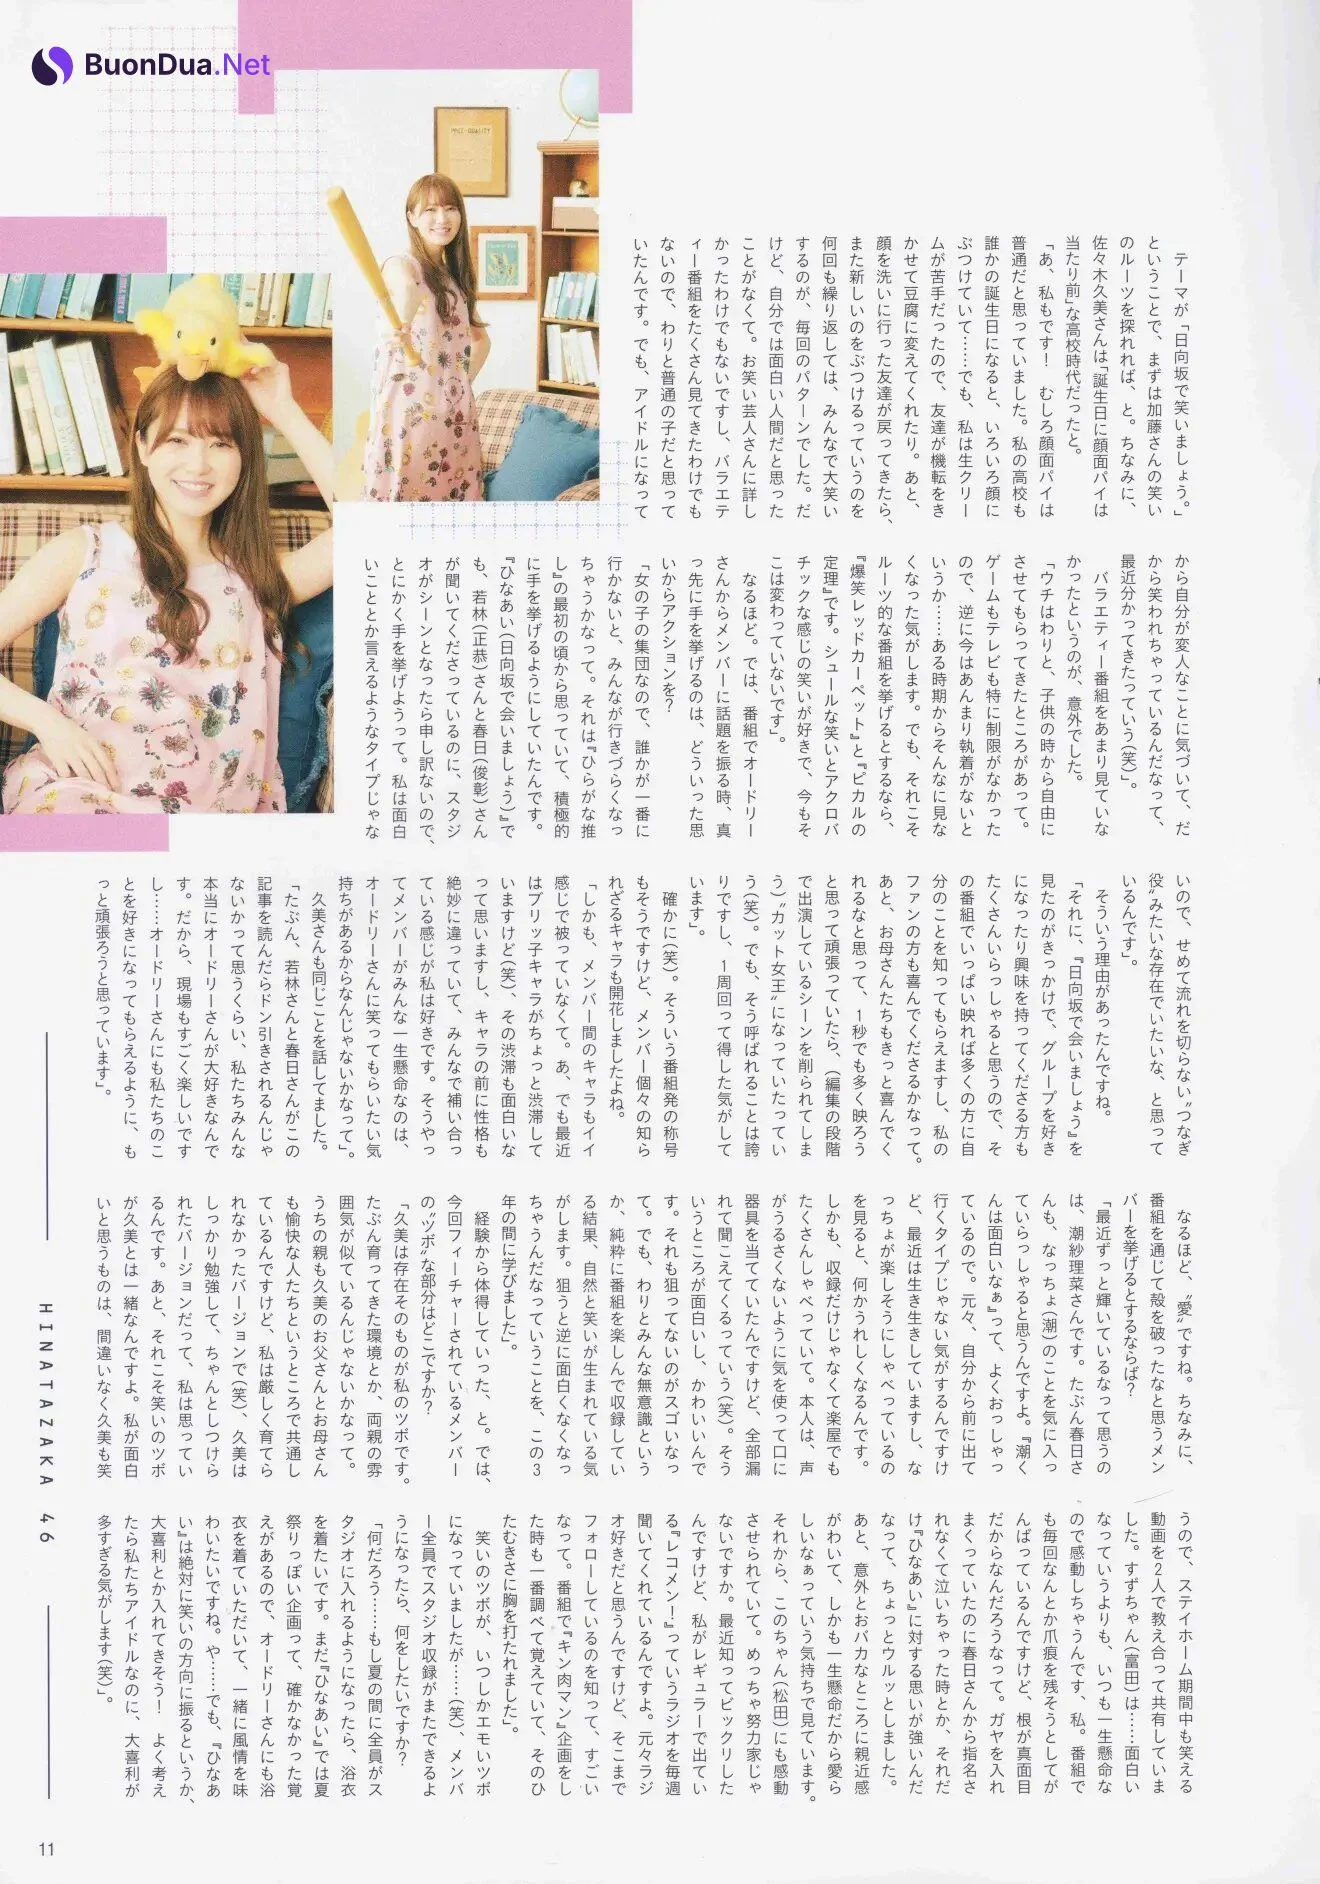 BuonDua.Net
PACE-QUALITY
テーマが「日向坂で笑いましょう。」
ということで、まずは加藤さんの笑い
のルーツを探れれば、と。ちなみに、
佐々木久美さんは「誕生日に顔面パイは
当たり前」な高校時代だったと。
「あ、私もです！　むしろ顔面パイは
普通だと思っていました。私の高校も
誰かの誕生日になると、いろいろ顔に
ぶつけていて……でも、私は生クリー
ムが苦手だったので、友達が機転をき
かせて豆腐に変えてくれたり。あと、
顔を洗いに行った友達が戻ってきたら、
また新しいのをぶつけるっていうのを
何回も繰り返しては、みんなで大笑い
するのが、毎回のパターンでした。だ
けど、自分では面白い人間だと思った
ことがなくて。お笑い芸人さんに詳し
かったわけでもないですし、バラエテ
ィー番組をたくさん見てきたわけでも
ないので、わりと普通の子だと思って
いたんです。でも、アイドルになって
から自分が変人なことに気づいて、だ
から笑われちゃっているんだなって、
最近分かってきたっていう（笑）」。
バラエティー番組をあまり見ていな
かったというのが、意外でした。
「ウチはわりと、子供の時から自由に
させてもらってきたところがあって。
ゲームもテレビも特に制限がなかった
ので、逆に今はあんまり執着がないと
いうか……ある時期からそんなに見な
くなった気がします。でも、それこそ
ルーツ的な番組を挙げるとするなら、
『爆笑レッドカーペット』と『ピカルの
定理』です。シュールな笑いとアクロバ
チックな感じの笑いが好きで、今もそ
こは変わっていないです」。
なるほど。では、番組でオードリー
さんからメンバーに話題を振る時、真
っ先に手を挙げるのは、どういった思
いからアクションを？
「女の子の集団なので、誰かが一番に
行かないと、みんなが行きづらくなっ
ちゃうかなって。それは『ひらがな推
し』の最初の頃から思っていて、積極的
に手を挙げるようにしていたんです。
『ひなあい（日向坂で会いましょう）』で
も、若林（正恭）さんと春日（俊彰）さん
が聞いてくださっているのに、スタジ
オがシーンとなったら申し訳ないので、
とにかく手を挙げようって。私は面白
いこととか言えるようなタイプじゃな
いので、せめて流れを切らない〝つなぎ
役〟みたいな存在でいたいな、と思って
いるんです」。
そういう理由があったんですね。
「それに、『日向坂で会いましょう』を
見たのがきっかけで、グループを好き
になったり興味を持ってくださる方も
たくさんいらっしゃると思うので、そ
の番組でいっぱい映れば多くの方に自
分のことを知ってもらえますし、私の
ファンの方も喜んでくださるかなって。
あと、お母さんたちもきっと喜んでく
れるなと思って、1秒でも多く映ろう
と思って頑張っていたら、（編集の段階
で出演しているシーンを削られてしま
う）〝カット女王〟になっていたってい
う（笑）。でも、そう呼ばれることは誇
りですし、1周回って得した気がして
います」。
確かに（笑）。そういう番組発の称号
もそうですけど、メンバー個々の知ら
れざるキャラも開花しましたよね。
「しかも、メンバー間のキャラもイイ
感じで被っていなくて。あ、でも最近
はブリッ子キャラがちょっと渋滞して
いますけど（笑）、その渋滞も面白いな
って思いますし、キャラの前に性格も
絶妙に違っていて、みんなで補い合っ
ている感じが私は好きです。そうやっ
てメンバーがみんな一生懸命なのは、
オードリーさんに笑ってもらいたい気
持ちがあるからなんじゃないかなって」。
久美さんも同じことを話してました。
「たぶん、若林さんと春日さんがこの
記事を読んだらドン引きされるんじゃ
ないかって思うくらい、私たちみんな
本当にオードリーさんが大好きなんで
す。だから、現場もすごく楽しいです
し……オードリーさんにも私たちのこ
とを好きになってもらえるように、も
っと頑張ろうと思っています」。
なるほど、〝愛〟ですね。ちなみに、
番組を通じて殻を破ったなと思うメン
バーを挙げるとするならば？
「最近ずっと輝いているなって思うの
は、潮紗理菜さんです。たぶん春日さ
んも、なっちょ（潮）のことを気に入っ
ていらっしゃると思うんですよ。『潮く
んは面白いなぁ』って、よくおっしゃっ
ているので。元々、自分から前に出て
行くタイプじゃない気がするんですけ
ど、最近は生き生きしていますし、な
っちょが楽しそうにしゃべっているの
を見ると、何かうれしくなるんです。
しかも、収録だけじゃなくて楽屋でも
たくさんしゃべっていて。本人は、声
がうるさくないように気を使って口に
器具を当てていたんですけど、全部漏
れて聞こえてくるっていう（笑）。そう
いうところが面白いし、かわいいんで
す。それも狙ってないのがスゴいなっ
て。でも、わりとみんな無意識という
か、純粋に番組を楽しんで収録してい
る結果、自然と笑いが生まれている気
がします。狙うと逆に面白くなくなっ
ちゃうんだなっていうことを、この3
年の間に学びました」。
経験から体得していった、と。では、
今回フィーチャーされているメンバー
の〝ツボ〟な部分はどこですか？
「久美は存在そのものが私のツボです。
たぶん育ってきた環境とか、両親の雰
囲気が似ているんじゃないかなって。
うちの親も久美のお父さんとお母さん
も愉快な人たちというところで共通し
ているんですけど、私は厳しく育てら
れなかったバージョンで（笑）、久美は
しっかり勉強して、ちゃんとしつけら
れたバージョンだって、私は思ってい
るんです。あと、それこそ笑いのツボ
が久美とは一緒なんですよ。私が面白
いと思うものは、間違いなく久美も笑
うので、ステイホーム期間中も笑える
動画を2人で教え合って共有していま
した。すずちゃん（富田）は……面白い
なっていうよりも、いつも一生懸命な
ので感動しちゃうんです、私。番組で
も毎回なんとか爪痕を残そうとしてが
んばっているんですけど、根が真面目
だからなんだろうなって。ガヤを入れ
まくっていたのに春日さんから指名さ
れなくて泣いちゃった時とか、それだ
け『ひなあい』に対する思いが強いんだ
なって、ちょっとウルッとしました。
あと、意外とおバカなところに親近感
がわいて、しかも一生懸命だから愛ら
しいなぁっていう気持ちで見ています。
それから、このちゃん（松田）にも感動
させられていて。めっちゃ努力家じゃ
ないですか。最近知ってビックリした
んですけど、私がレギュラーで出てい
る『レコメン！』っていうラジオを毎週
聞いてくれているんですよ。元々ラジ
オ好きだと思うんですけど、そこまで
フォローしているのを知って、すごい
なって。番組で『キン肉マン』企画をし
た時も一番調べて覚えていて、そのひ
たむきさに胸を打たれました」。
笑いのツボが、いつしかエモいツボ
になっていましたが……（笑）、メンバ
ー全員でスタジオ収録がまたできるよ
うになったら、何をしたいですか？
「何だろう……もし夏の間に全員がス
タジオに入れるようになったら、浴衣
を着たいです。まだ『ひなあい』では夏
祭りっぽい企画って、確かなかった覚
えがあるので、オードリーさんにも浴
衣を着ていただいて、一緒に風情を味
わいたいですね。や……でも、『ひなあ
い』は絶対に笑いの方向に振るというか、
大喜利とか入れてきそう！　よく考え
たら私たちアイドルなのに、大喜利が
多すぎる気がします（笑）」。
HINATAZAKA 46
11